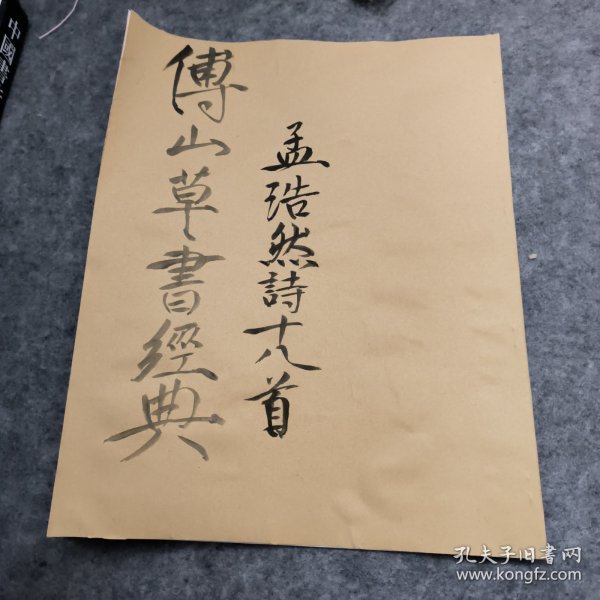 傅山草書經典
孟浩然詩十八首
中國書
孔夫子旧書网
www.kongfz.com